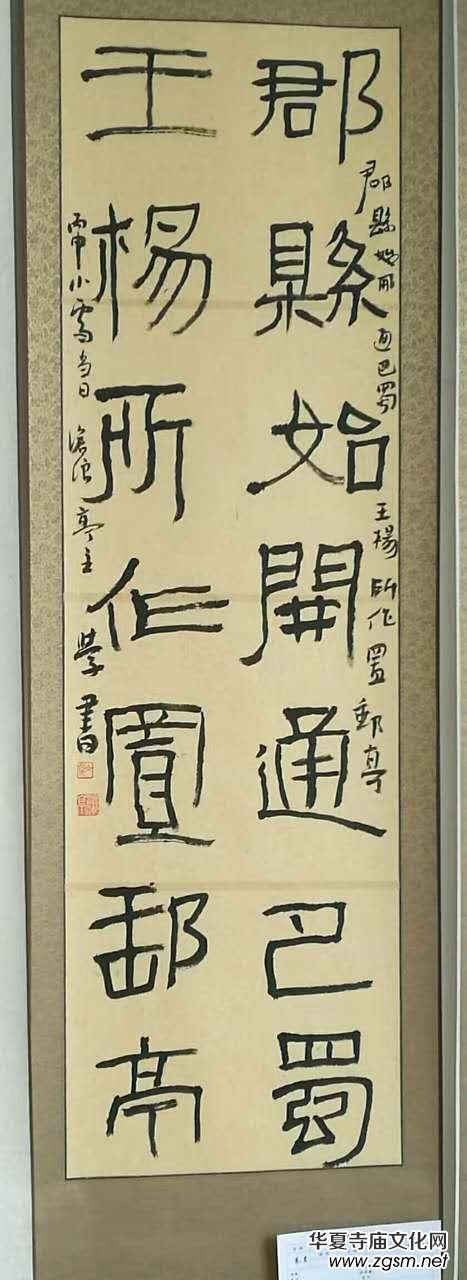 郡縣始開通巴蜀
郡縣始開通巴蜀 王楊所作置郵亭
王楊所作置郵亭
丙申小雪当日 滄浪亭主 学書
华夏寺庙文化网
www.zgsm.net